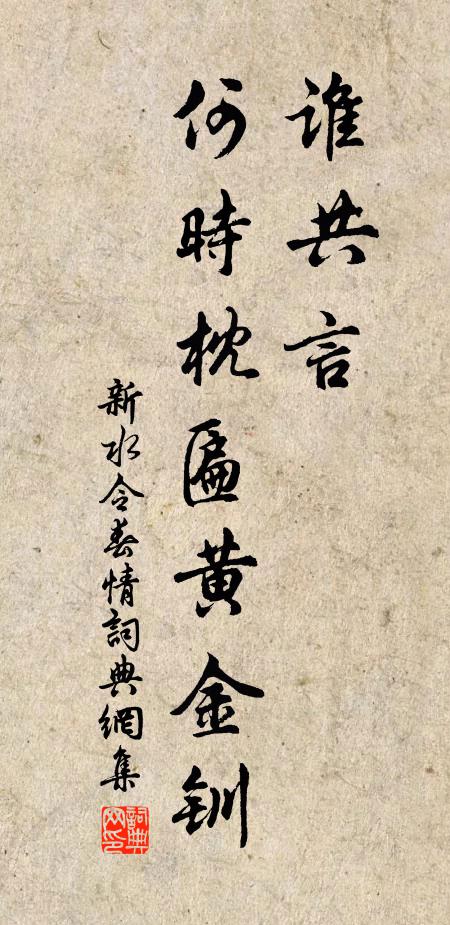 誰共言
何時枕匾黄金釧
新水令春情詞典網集
詞典網印